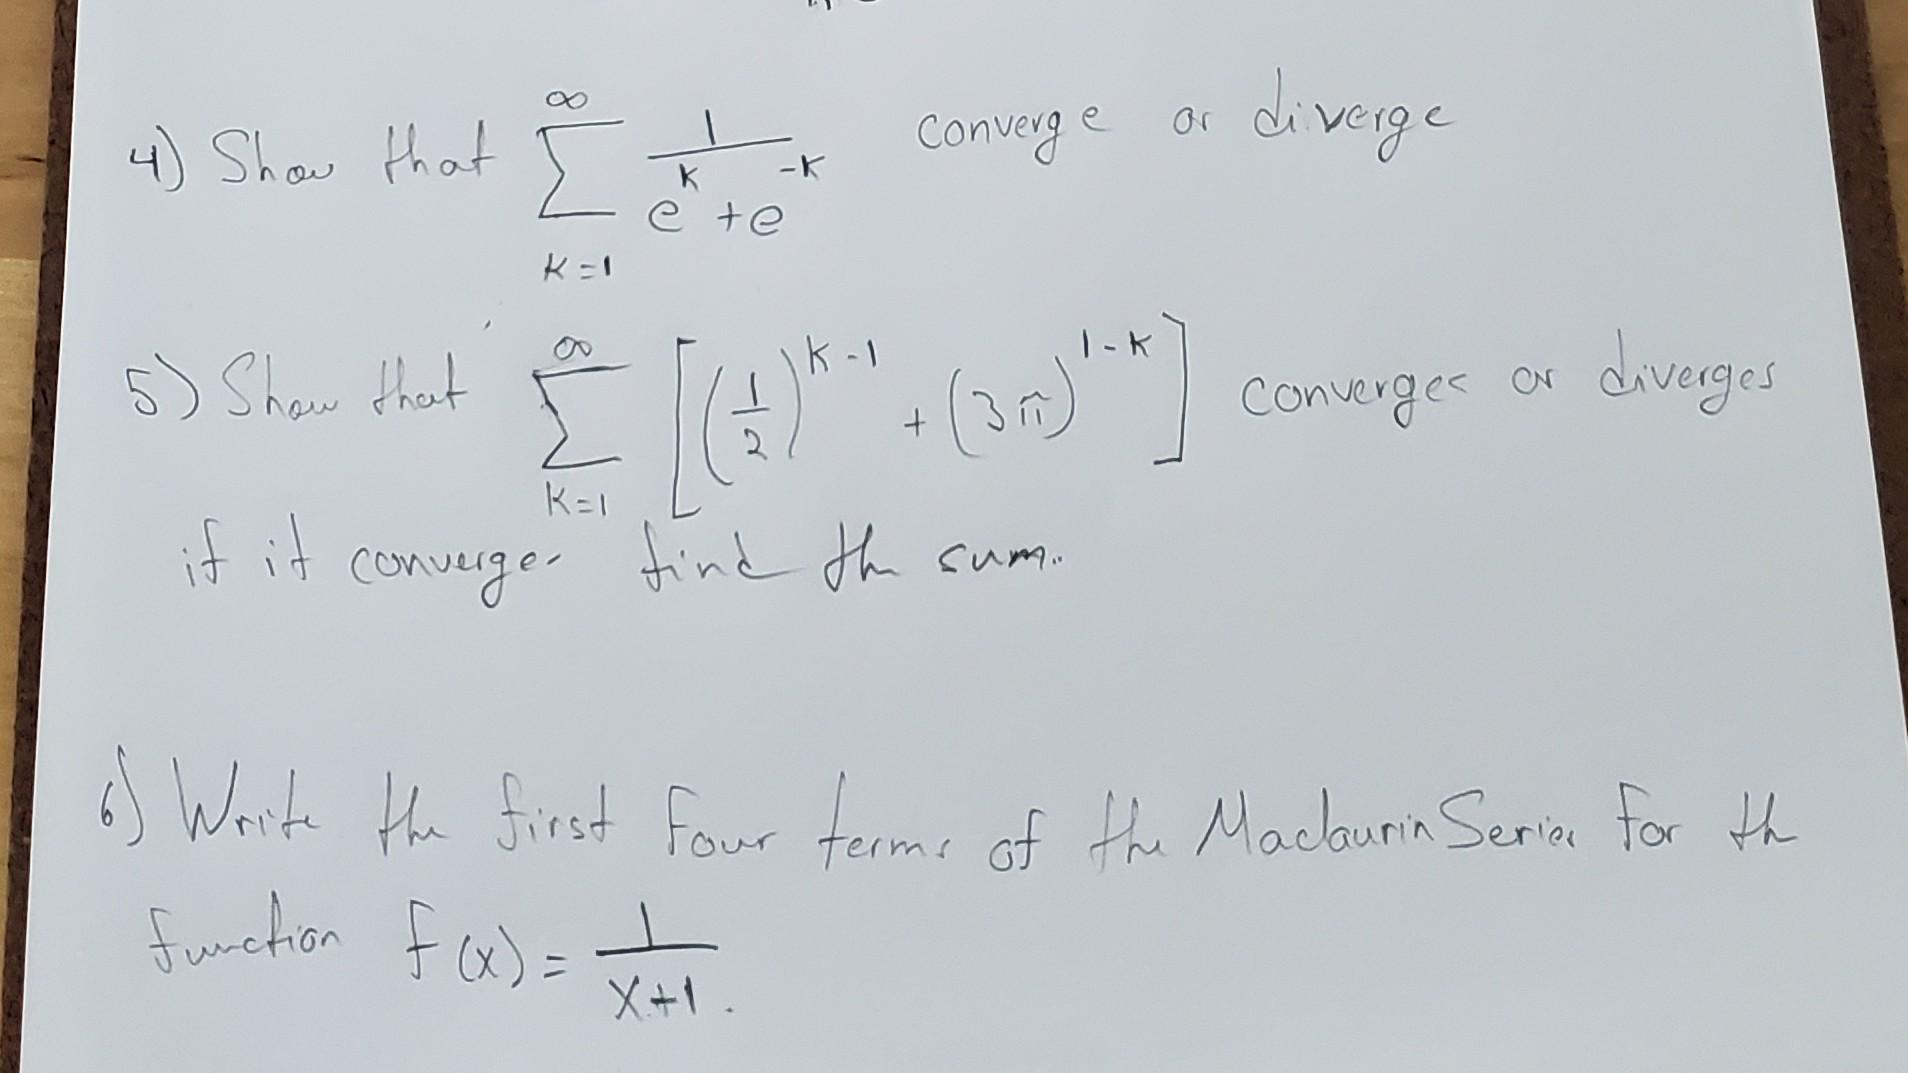 4) Show that ∞ ∑ K=1 1 / (e^K + e^-K) converge or diverge
5) Show that ∞ ∑ K=1 [(1/2)^(K-1) + (3π)^(1-K)] converges or diverges
if it converges find th sum.
6) Write the first four terms of the Maclaurin Series for th
function f(x) = 1 / (x+1).